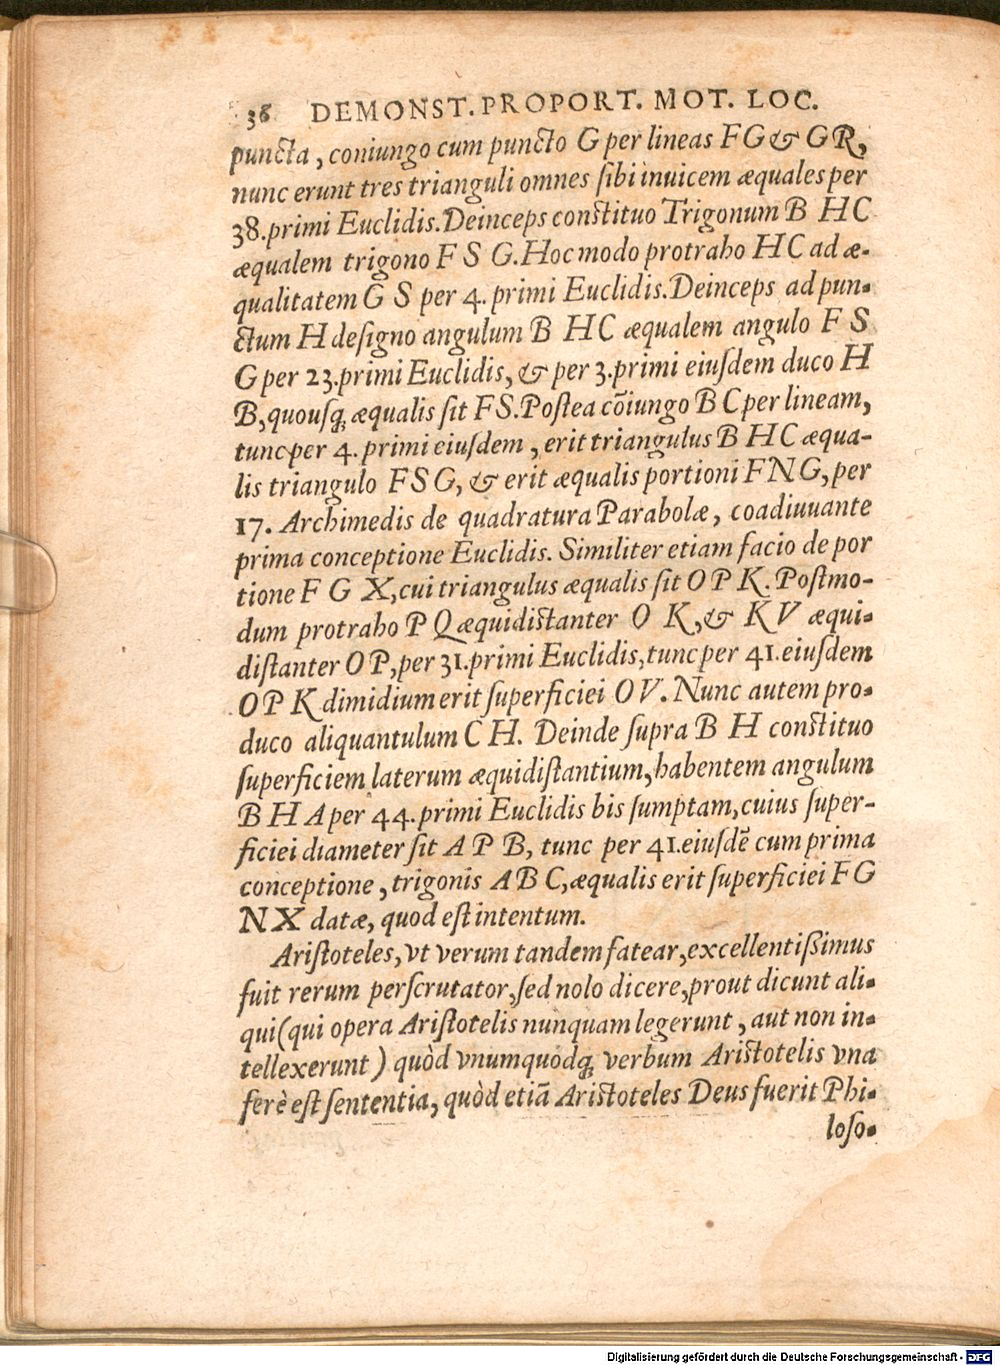 38 DEMONST. PROPORT. MOT. LOC.
puncta, coniungo cum puncto G per lineas F G & G R,
nunc erunt tres trianguli omnes sibi inuicem æquales per
38. primi Euclidis. Deinceps constituo Trigonum B H C
æqualem trigono F S G. Hoc modo protraho H C ad æ-
qualitatem G S per 4. primi Euclidis. Deinceps ad pun-
ctum H designo angulum B H C æqualem angulo F S
G per 23. primi Euclidis, & per 3. primi eiusdem duco H
B, quousq; æqualis sit F S. Postea cõiungo B C per lineam,
tunc per 4. primi eiusdem, erit triangulus B H C æqua-
lis triangulo F S G, & erit æqualis portioni F N G, per
17. Archimedis de quadratura Parabolæ, coadiuuante
prima conceptione Euclidis. Similiter etiam facio de por
tione F G X, cui triangulus æqualis sit O P K. Postmo-
dum protraho P Q æquidistanter O K, & K V æqui-
distanter O P, per 31. primi Euclidis, tunc per 41. eiusdem
O P K dimidium erit superficiei O V. Nunc autem pro-
duco aliquantulum C H. Deinde supra B H constituo
superficiem laterum æquidistantium, habentem angulum
B H A per 44. primi Euclidis bis sumptam, cuius super-
ficiei diameter sit A P B, tunc per 41. eiusdẽ cum prima
conceptione, trigonis A B C, æqualis erit superficiei F G
N X datæ, quod est intentum.
Aristoteles, vt verum tandem fatear, excellentißimus
fuit rerum perscrutator, sed nolo dicere, prout dicunt ali-
qui (qui opera Aristotelis nunquam legerunt, aut non in-
tellexerunt) quòd vnumquodq; verbum Aristotelis vna
ferè est sententia, quòd etiã Aristoteles Deus fuerit Phi-
loso-
Digitalisierung gefördert durch die Deutsche Forschungsgemeinschaft - DFG